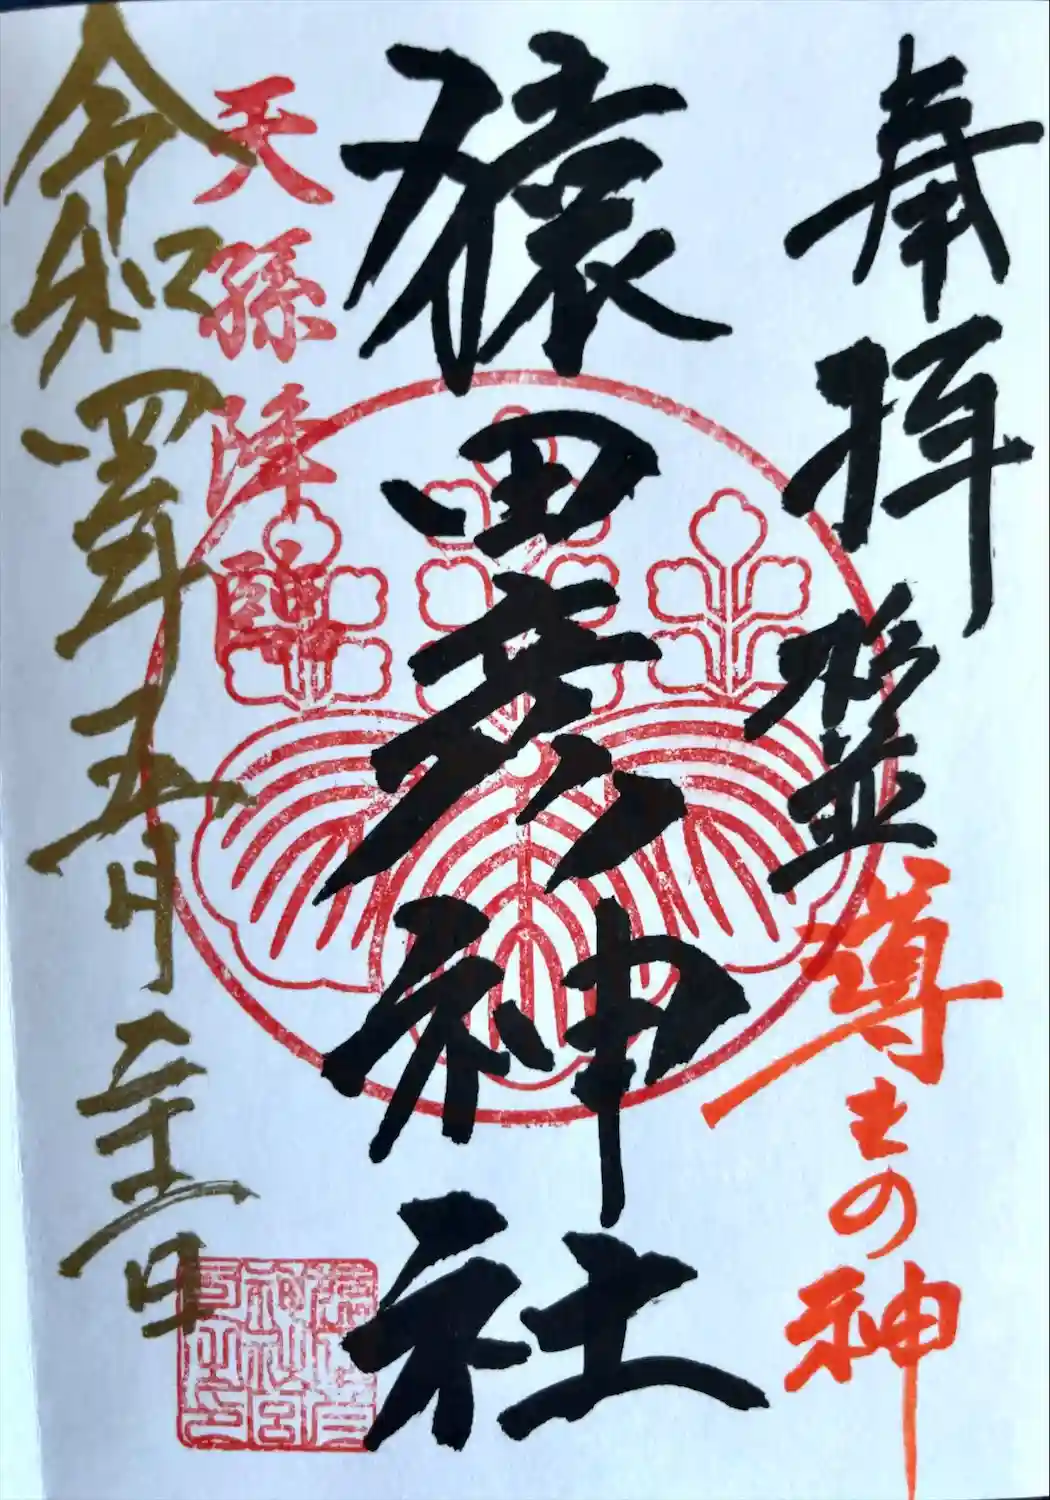 奉拝
導きの神
猿田彦神社
天孫降臨
令和四年五月日